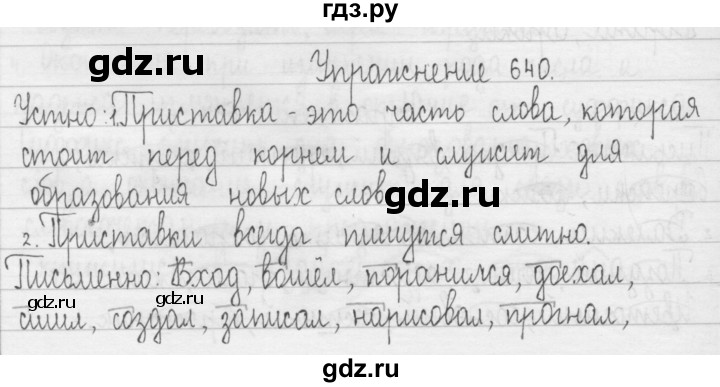 гдз.ру
gdz.ru
gdz.ru
Упражнение 640.
Устно: 1. Приставка - это часть слова, которая
стоит перед корнем и служит для
образования новых слов
gdz.ru
2. Приставки всегда пишутся слитно.
Письменно: Вход, вошёл, поранился, доехал,
gdz.ru
gdz.ru
сшил, создал, записал, нарисовал, прогнал,
gdz.ru